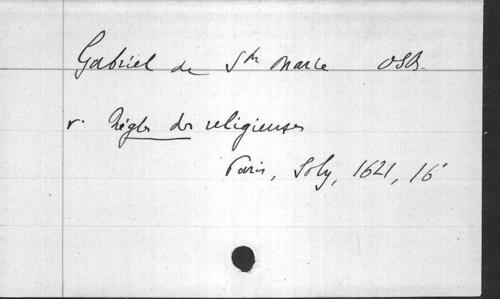 Gabriel de Ste Marie OSB.
v. Règles des religieuses
Paris, Soly, 1621, 16°